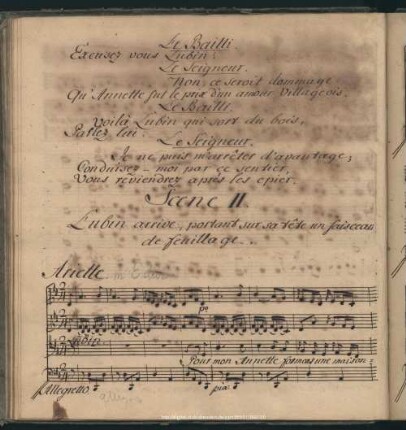 Le Bailli
Excusez vous Lubin.
Le Seigneur.
Non; ce seroit dommage
Qu'Annette fut le prix d'un amour Villageois.
Le Bailli.
voilà Lubin qui sort du bois,
Parlez lui.
Le Seigneur.
Je ne puis m'arrêter d'avantage;
Conduisez-moi par ce sentier,
Vous reviendrez après les épier.
Scene II
Lubin arrive, portant sur sa tête un faisceau
de feuillage.
Ariette
p.º
Lubin.
Pour mon Annette formons une maison
Allegretto
pia.